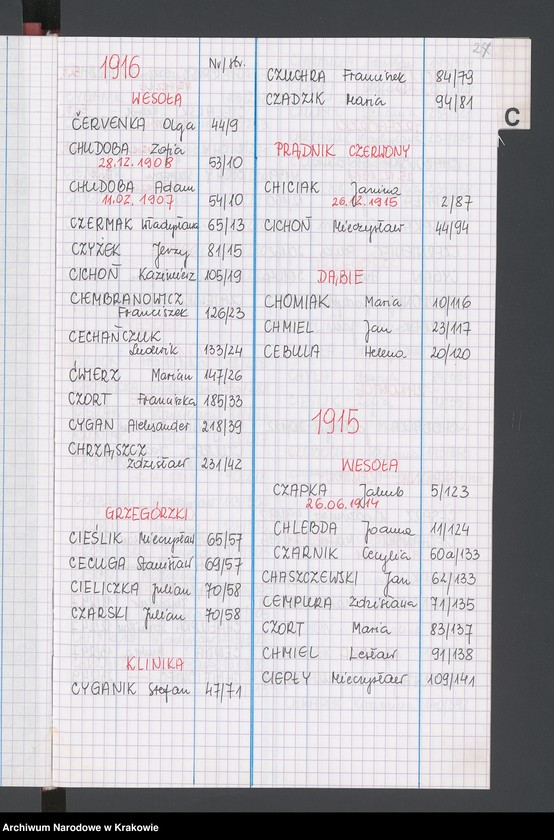 1916
Nr/str.
WESOŁA
ČERVENKA Olga 44/9
CHUDOBA Zofia
28.12.1908 53/10
CHUDOBA Adam
11.02.1907 54/10
CZERMAK Władysława 65/13
CZYŻEK Jerzy 81/15
CICHOŃ Kazimierz 105/19
CIEMBRANOWICZ
Franciszek 126/23
CECHAŃCZUK
Ludwik 133/24
ĆWIERZ Marian 147/26
CZORT Franciszka 185/33
CYGAN Aleksander 218/39
CHRZĄSZCZ
Zdzisław 231/42
GRZEGÓRZKI
CIEŚLIK Mieczysław 65/57
CECUGA Stanisław 69/57
CIELICZKA Julian 70/58
CZARSKI Julian 70/58
KLINIKA
CYGANIK Stefan 47/71
CZUCHRA Franciszek 84/79
CZADZIK Maria 94/81
PRĄDNIK CZERWONY
CHICIAK Janina
26.12.1915 2/87
CICHOŃ Mieczysław 44/94
DĄBIE
CHOMIAK Maria 10/116
CHMIEL Jan 23/117
CEBULA Helena 20/120
1915
WESOŁA
CZAPKA Jakub 5/123
26.06.1914
CHLEBDA Joanna 11/124
CZARNIK Cecylia 60a/133
CHASZCZEWSKI Jan 62/133
CEMPURA Zdzisława 71/135
CZORT Maria 83/137
CHMIEL Lesław 91/138
CIEPŁY Mieczysław 109/141
C
Archiwum Narodowe w Krakowie